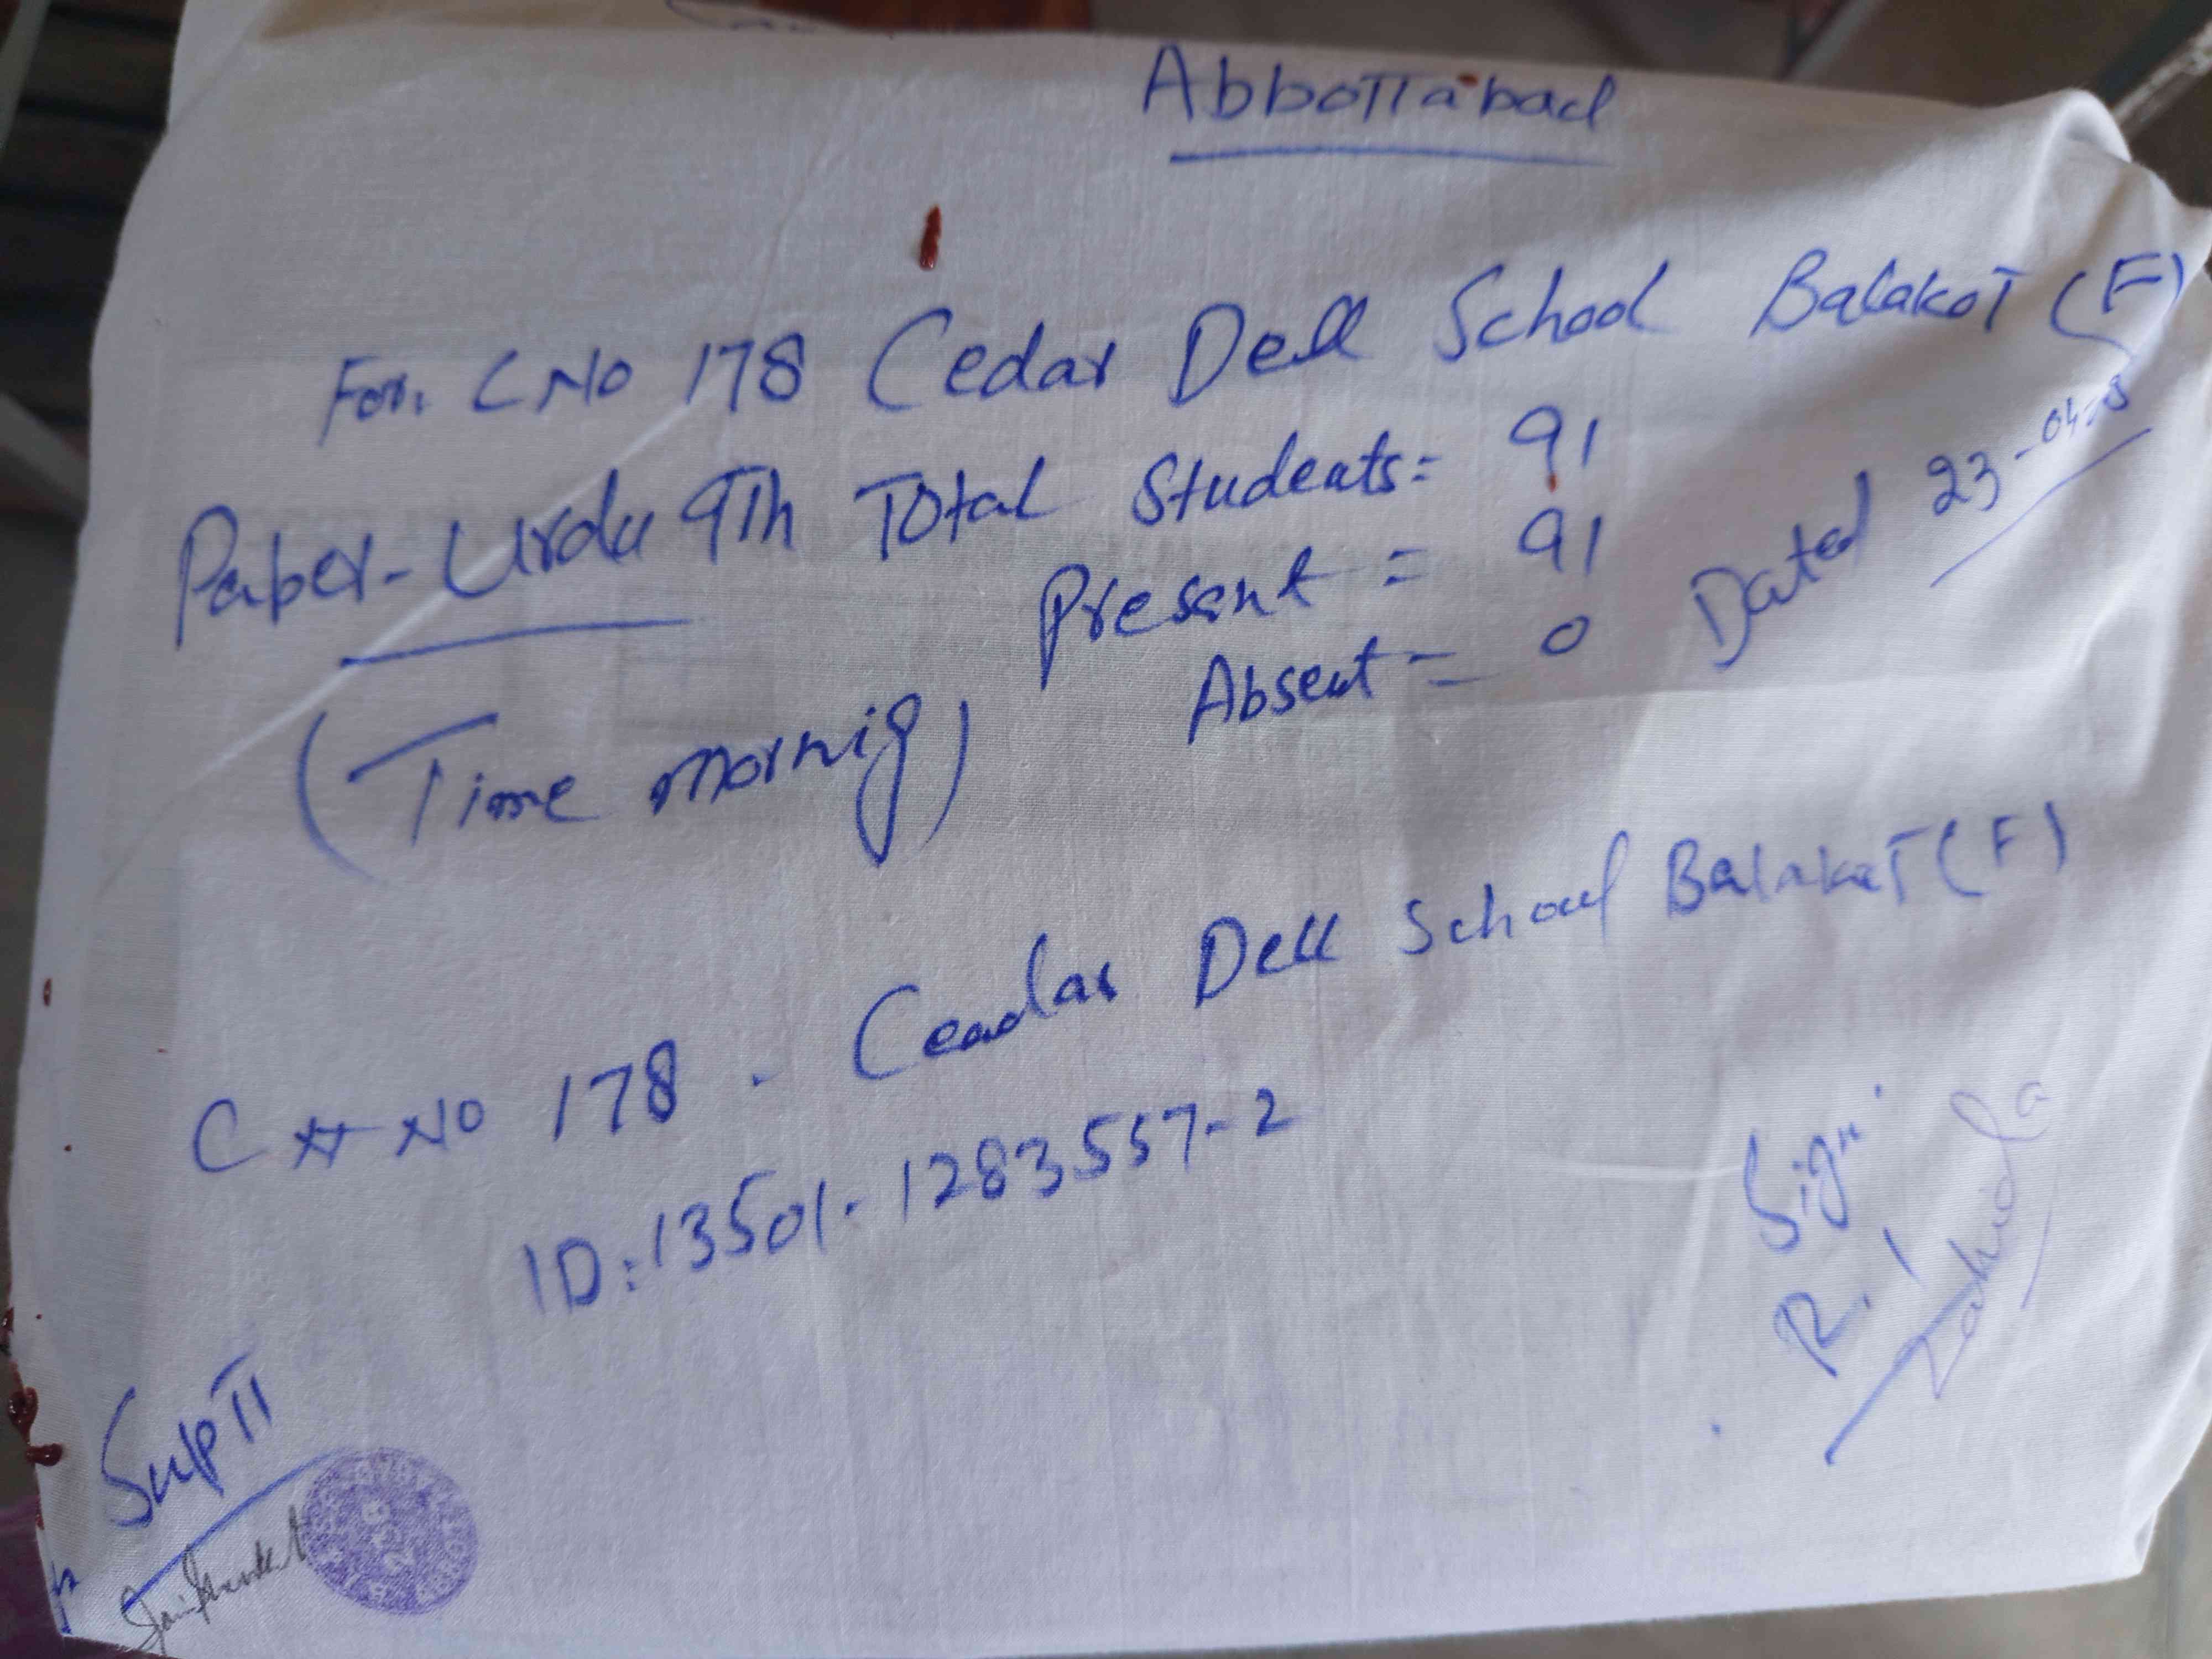 Abbottabad
For. C No 178 Cedar Dell School Balakot (F)
Paper - Urdu 9th Total Students = 91
Present = 91
Absent = 0 Dated 23-04-
(Time mornig)
C No 178 - Ceadar Dell School Balakot (F)
ID: 13501-1283557-2
Sign
R.I
Supтt